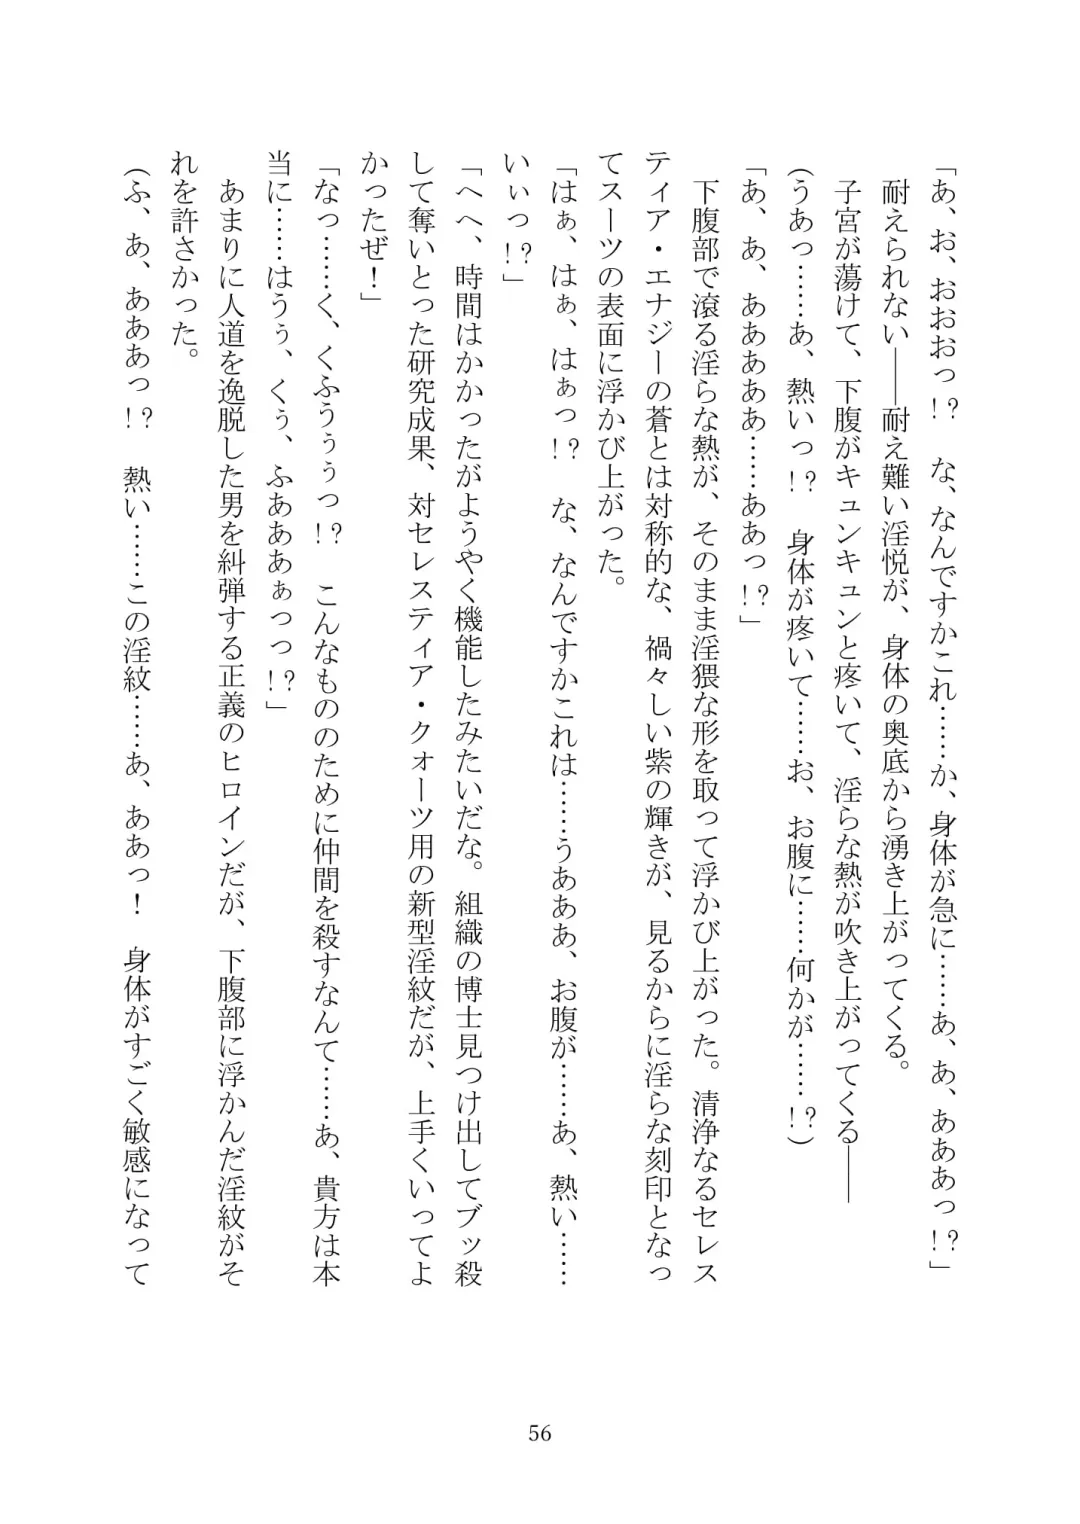 「あ、お、おおおっ!?　な、なんですかこれ……か、身体が急に……あ、あ、あああっ!?」
　耐えられない――耐え難い淫悦が、身体の奥底から湧き上がってくる。
　子宮が蕩けて、下腹がキュンキュンと疼いて、淫らな熱が吹き上がってくる――
(うあっ……あ、熱いっ!?　身体が疼いて……お、お腹に……何かが……!?)
「あ、あ、あああああ……ああっ!?」
　下腹部で滾る淫らな熱が、そのまま淫猥な形を取って浮かび上がった。清浄なるセレス
ティア・エナジーの蒼とは対称的な、禍々しい紫の輝きが、見るからに淫らな刻印となっ
てスーツの表面に浮かび上がった。
「はぁ、はぁ、はぁっ!?　な、なんですかこれは……うああ、お腹が……あ、熱い……
いぃっ!?」
「へへ、時間はかかったがようやく機能したみたいだな。組織の博士見つけ出してブッ殺
して奪いとった研究成果、対セレスティア・クォーツ用の新型淫紋だが、上手くいってよ
かったぜ！」
「なっ……く、くふうぅぅっ!?　こんなもののために仲間を殺すなんて……あ、貴方は本
当に……はうぅ、くぅ、ふあああぁっっ!?」
　あまりに人道を逸脱した男を糾弾する正義のヒロインだが、下腹部に浮かんだ淫紋がそ
れを許さかった。
(ふ、あ、あああっ!?　熱い……この淫紋……あ、ああっ！　身体がすごく敏感になって
56